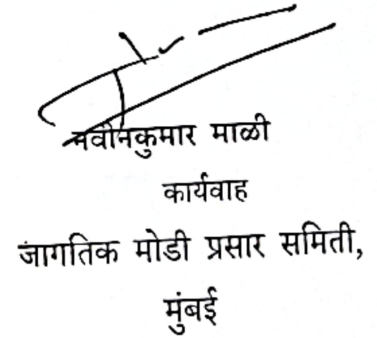 नवीनकुमार माळी
कार्यवाह
जागतिक मोडी प्रसार समिती,
मुंबई